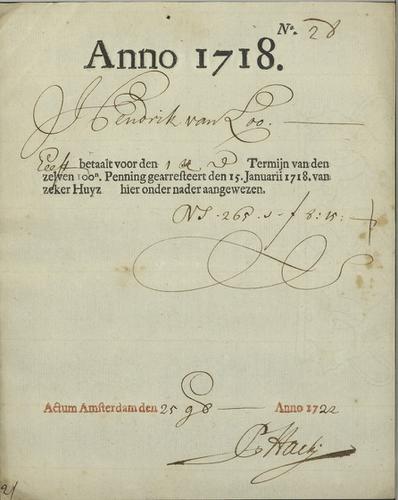 N°. 28
Anno 1718.
Hendrik van Loo.
Heeft betaalt voor den 1 Termijn van den
zelven 100n. Penning gearresteert den 15. Januarii 1718. van
zeker Huyz hier onder nader aangewezen.
N 265 f 8:15:
Actum Amsterdam den 25 Anno 1722